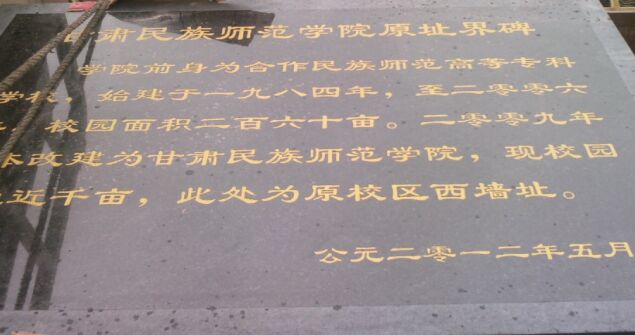 甘肃民族师范学院原址界碑
学院前身为合作民族师范高等专科
学校，始建于一九八四年，至二零零六
校园面积二百六十亩。二零零九年
本改建为甘肃民族师范学院，现校园
近千亩，此处为原校区西墙址。
公元二零一二年五月